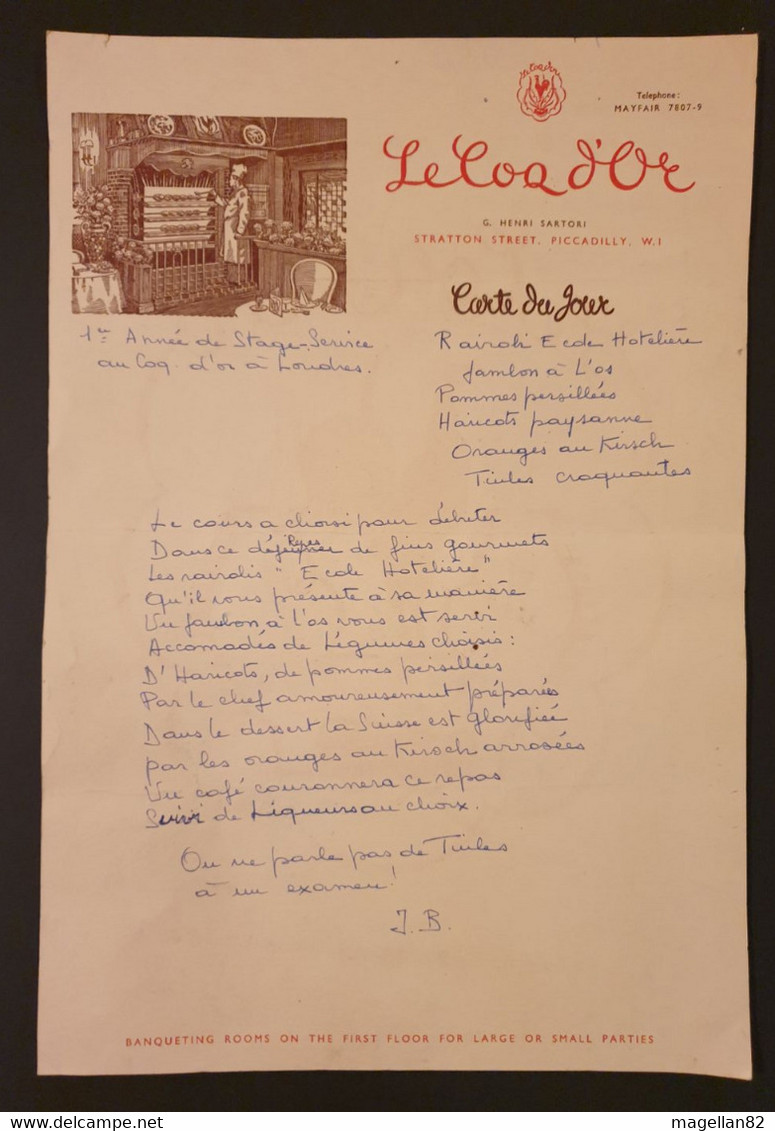 Le Coq d'Or
Telephone:
MAYFAIR 7807-9
Le Coq d'Or
G. HENRI SARTORI
STRATTON STREET, PICCADILLY, W.1
Carte du Jour
1ère Année de Stage-Service
au Coq d'or à Londres.
Rairoli Ecole Hotelière
Jambon à L'os
Pommes persillées
Haricots paysanne
Oranges au Kirsch
Tuiles craquantes
Le cours a choisi pour débuter
Dans ce déjeuner de fins gourmets
Les "Ecole Hotelière"
Qu'il vous présente à sa manière
Un jambon à l'os vous est servi
Accomadés de Légumes choisis:
D'Haricots, de pommes persillées
Par le chef amoureusement préparés
Dans le dessert la Suisse est glorifiée
par les oranges au Kirsch arrosées
Un café couronnera ce repas
Suivi de Liqueurs au choix.
On ne parle pas de Tuiles
à un examen!
J.B.
BANQUETING ROOMS ON THE FIRST FLOOR FOR LARGE OR SMALL PARTIES
magellan82